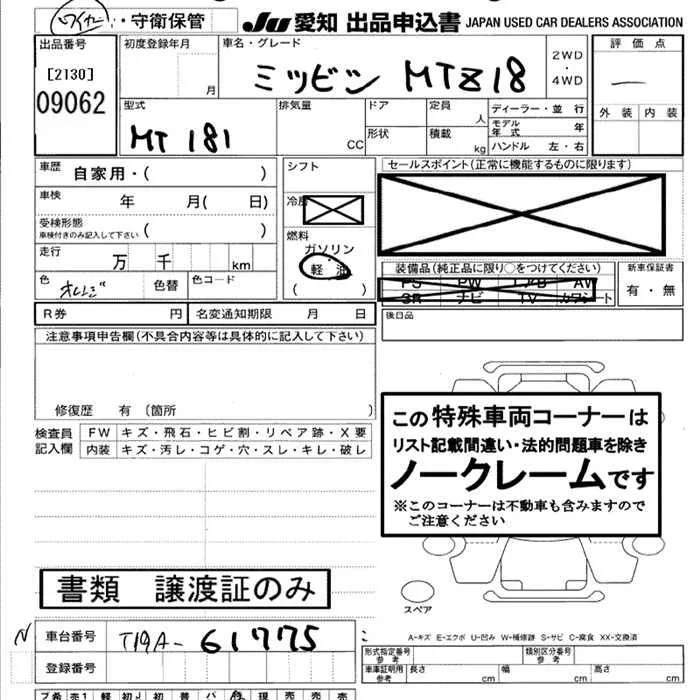 ワイヤー・守衛保管
JU 愛知 出品申込書 JAPAN USED CAR DEALERS ASSOCIATION
出品番号
[2130]
09062
初度登録年月
月
車名・グレード
ミツビシ MTZ18
2WD
・
4WD
評価点
—
外装 内装
型式
MT 181
排気量
CC
ドア
形状
定員 人
積載 kg
ディーラー・並行
モデル年式 年
ハンドル 左・右
車歴 自家用・( )
車検 年 月( 日)
受検形態
車検付きのみ記入して下さい ( )
走行 万 千 km
色 オレンジ 色替 色コード
シフト
冷房
燃料
ガソリン
・
軽油
( )
セールスポイント(正常に機能するものに限ります)
装備品(純正品に限り○をつけてください)
PS PW エアB AW
SR ナビ TV カワシート
新車保証書
有・無
R券 円 名変通知期限 月 日
後日品
注意事項申告欄(不具合内容等は具体的に記入して下さい)
修復歴 有 〔箇所 〕
検査員記入欄
FW キズ・飛石・ヒビ割・リペア跡・X要
内装 キズ・汚レ・コゲ・穴・スレ・キレ・破レ
この特殊車両コーナーは
リスト記載間違い・法的問題車を除き
ノークレームです
※このコーナーは不動車も含みますので
ご注意ください
書類 譲渡証のみ
スペア
A-キズ E-エクボ U-凹み W-補修跡 S-サビ C-腐食 XX-交換済
車台番号 T19A-61775
登録番号
形式指定番号
参考
類別区分番号
参考
車庫証明用
参考
長さ 幅 高さ